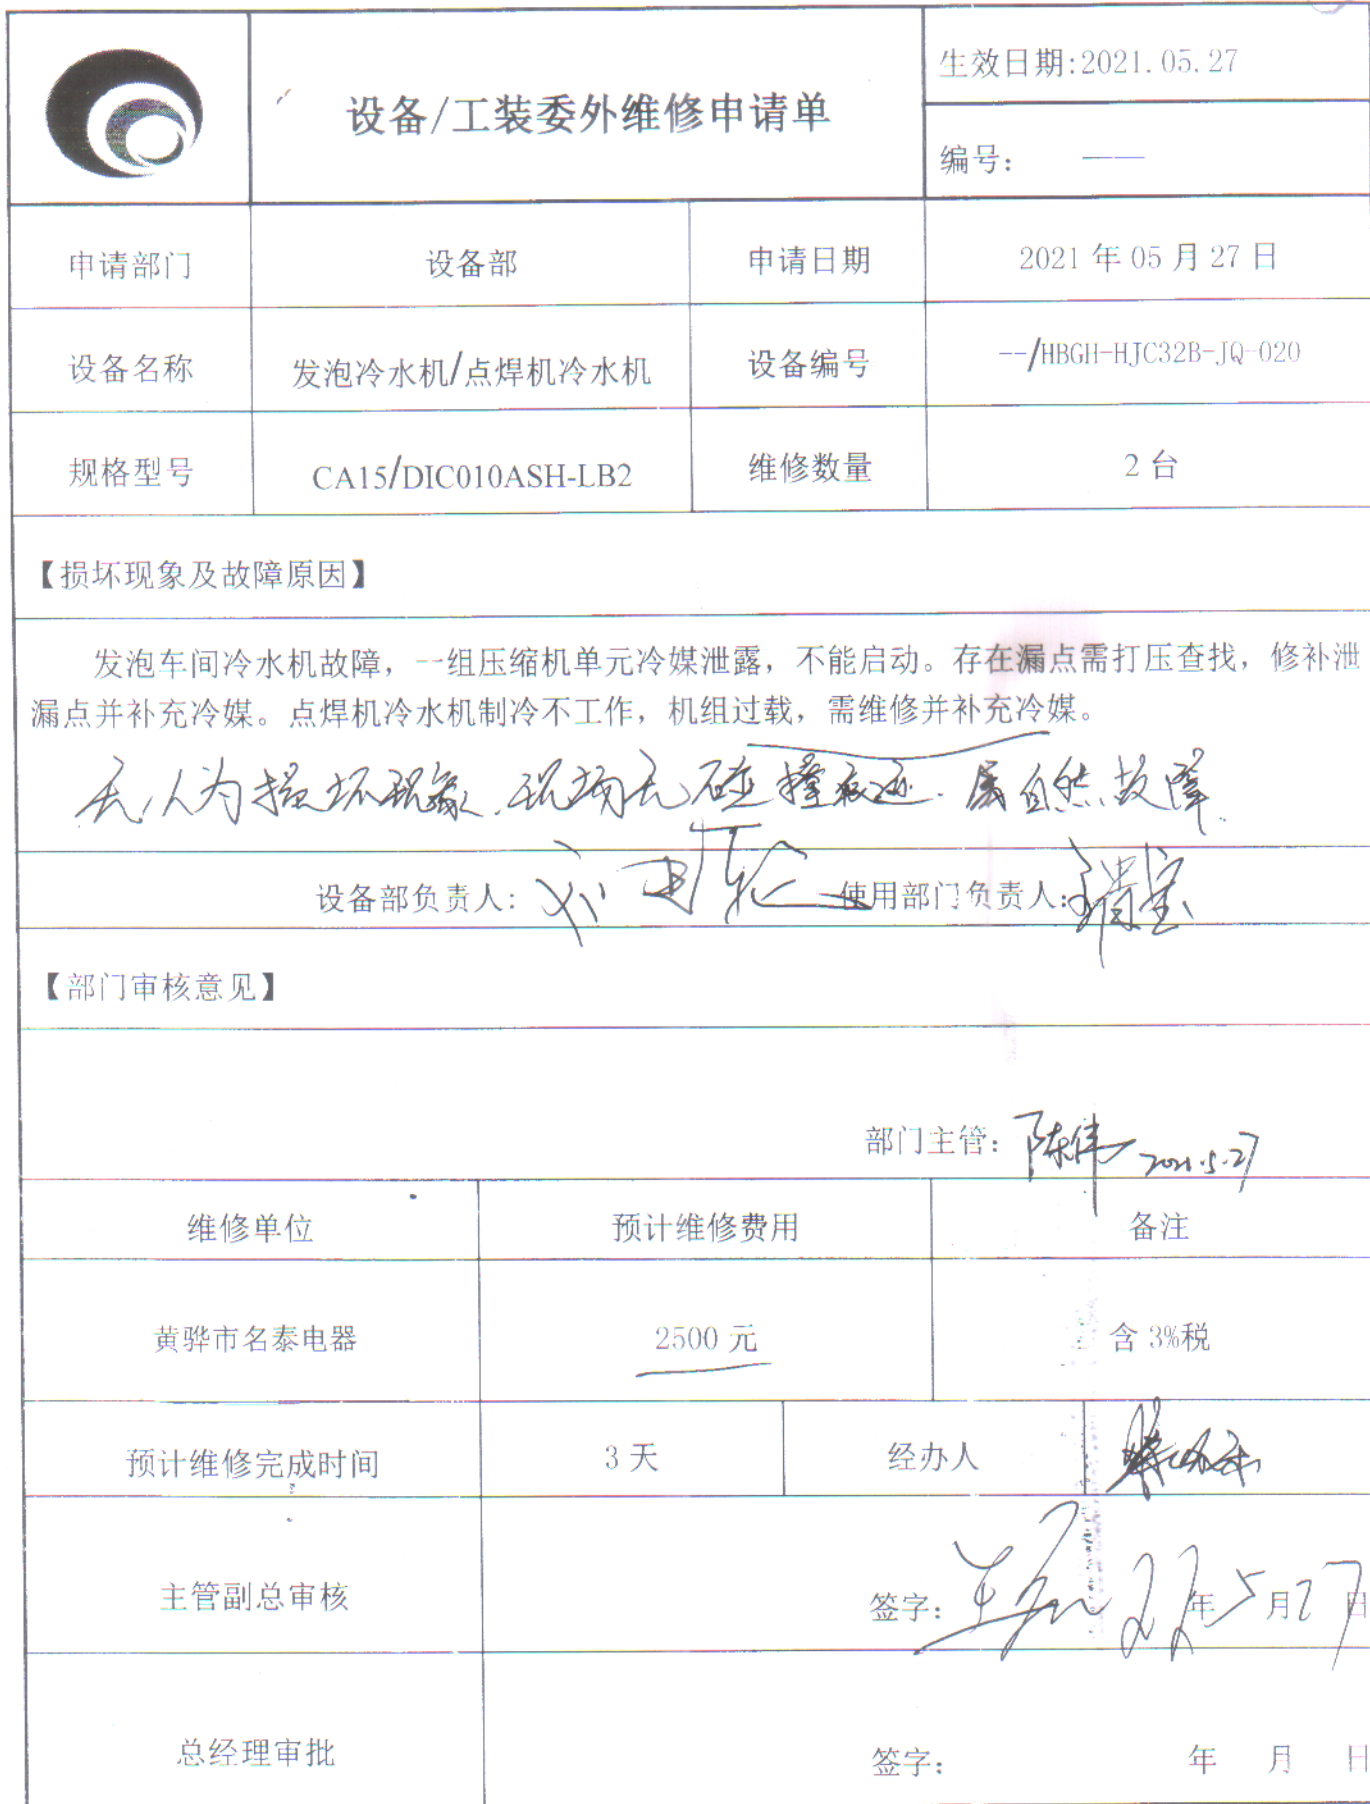 设备/工装委外维修申请单
生效日期:2021.05.27
编号: ——
申请部门 设备部 申请日期 2021 年 05 月 27 日
设备名称 发泡冷水机/点焊机冷水机 设备编号 --/HBGH-HJC32B-JQ-020
规格型号 CA15/DIC010ASH-LB2 维修数量 2 台
【损坏现象及故障原因】
发泡车间冷水机故障，一组压缩机单元冷媒泄露，不能启动。存在漏点需打压查找，修补泄
漏点并补充冷媒。点焊机冷水机制冷不工作，机组过载，需维修并补充冷媒。
无人为损坏现象.现场无碰撞痕迹.属自然故障.
设备部负责人: 使用部门负责人:
【部门审核意见】
部门主管: 陈伟 2021.5.27
维修单位 预计维修费用 备注
黄骅市名泰电器 2500 元 含 3%税
预计维修完成时间 3 天 经办人
主管副总审核 签字: 年 5 月 27 日
总经理审批 签字: 年 月 日